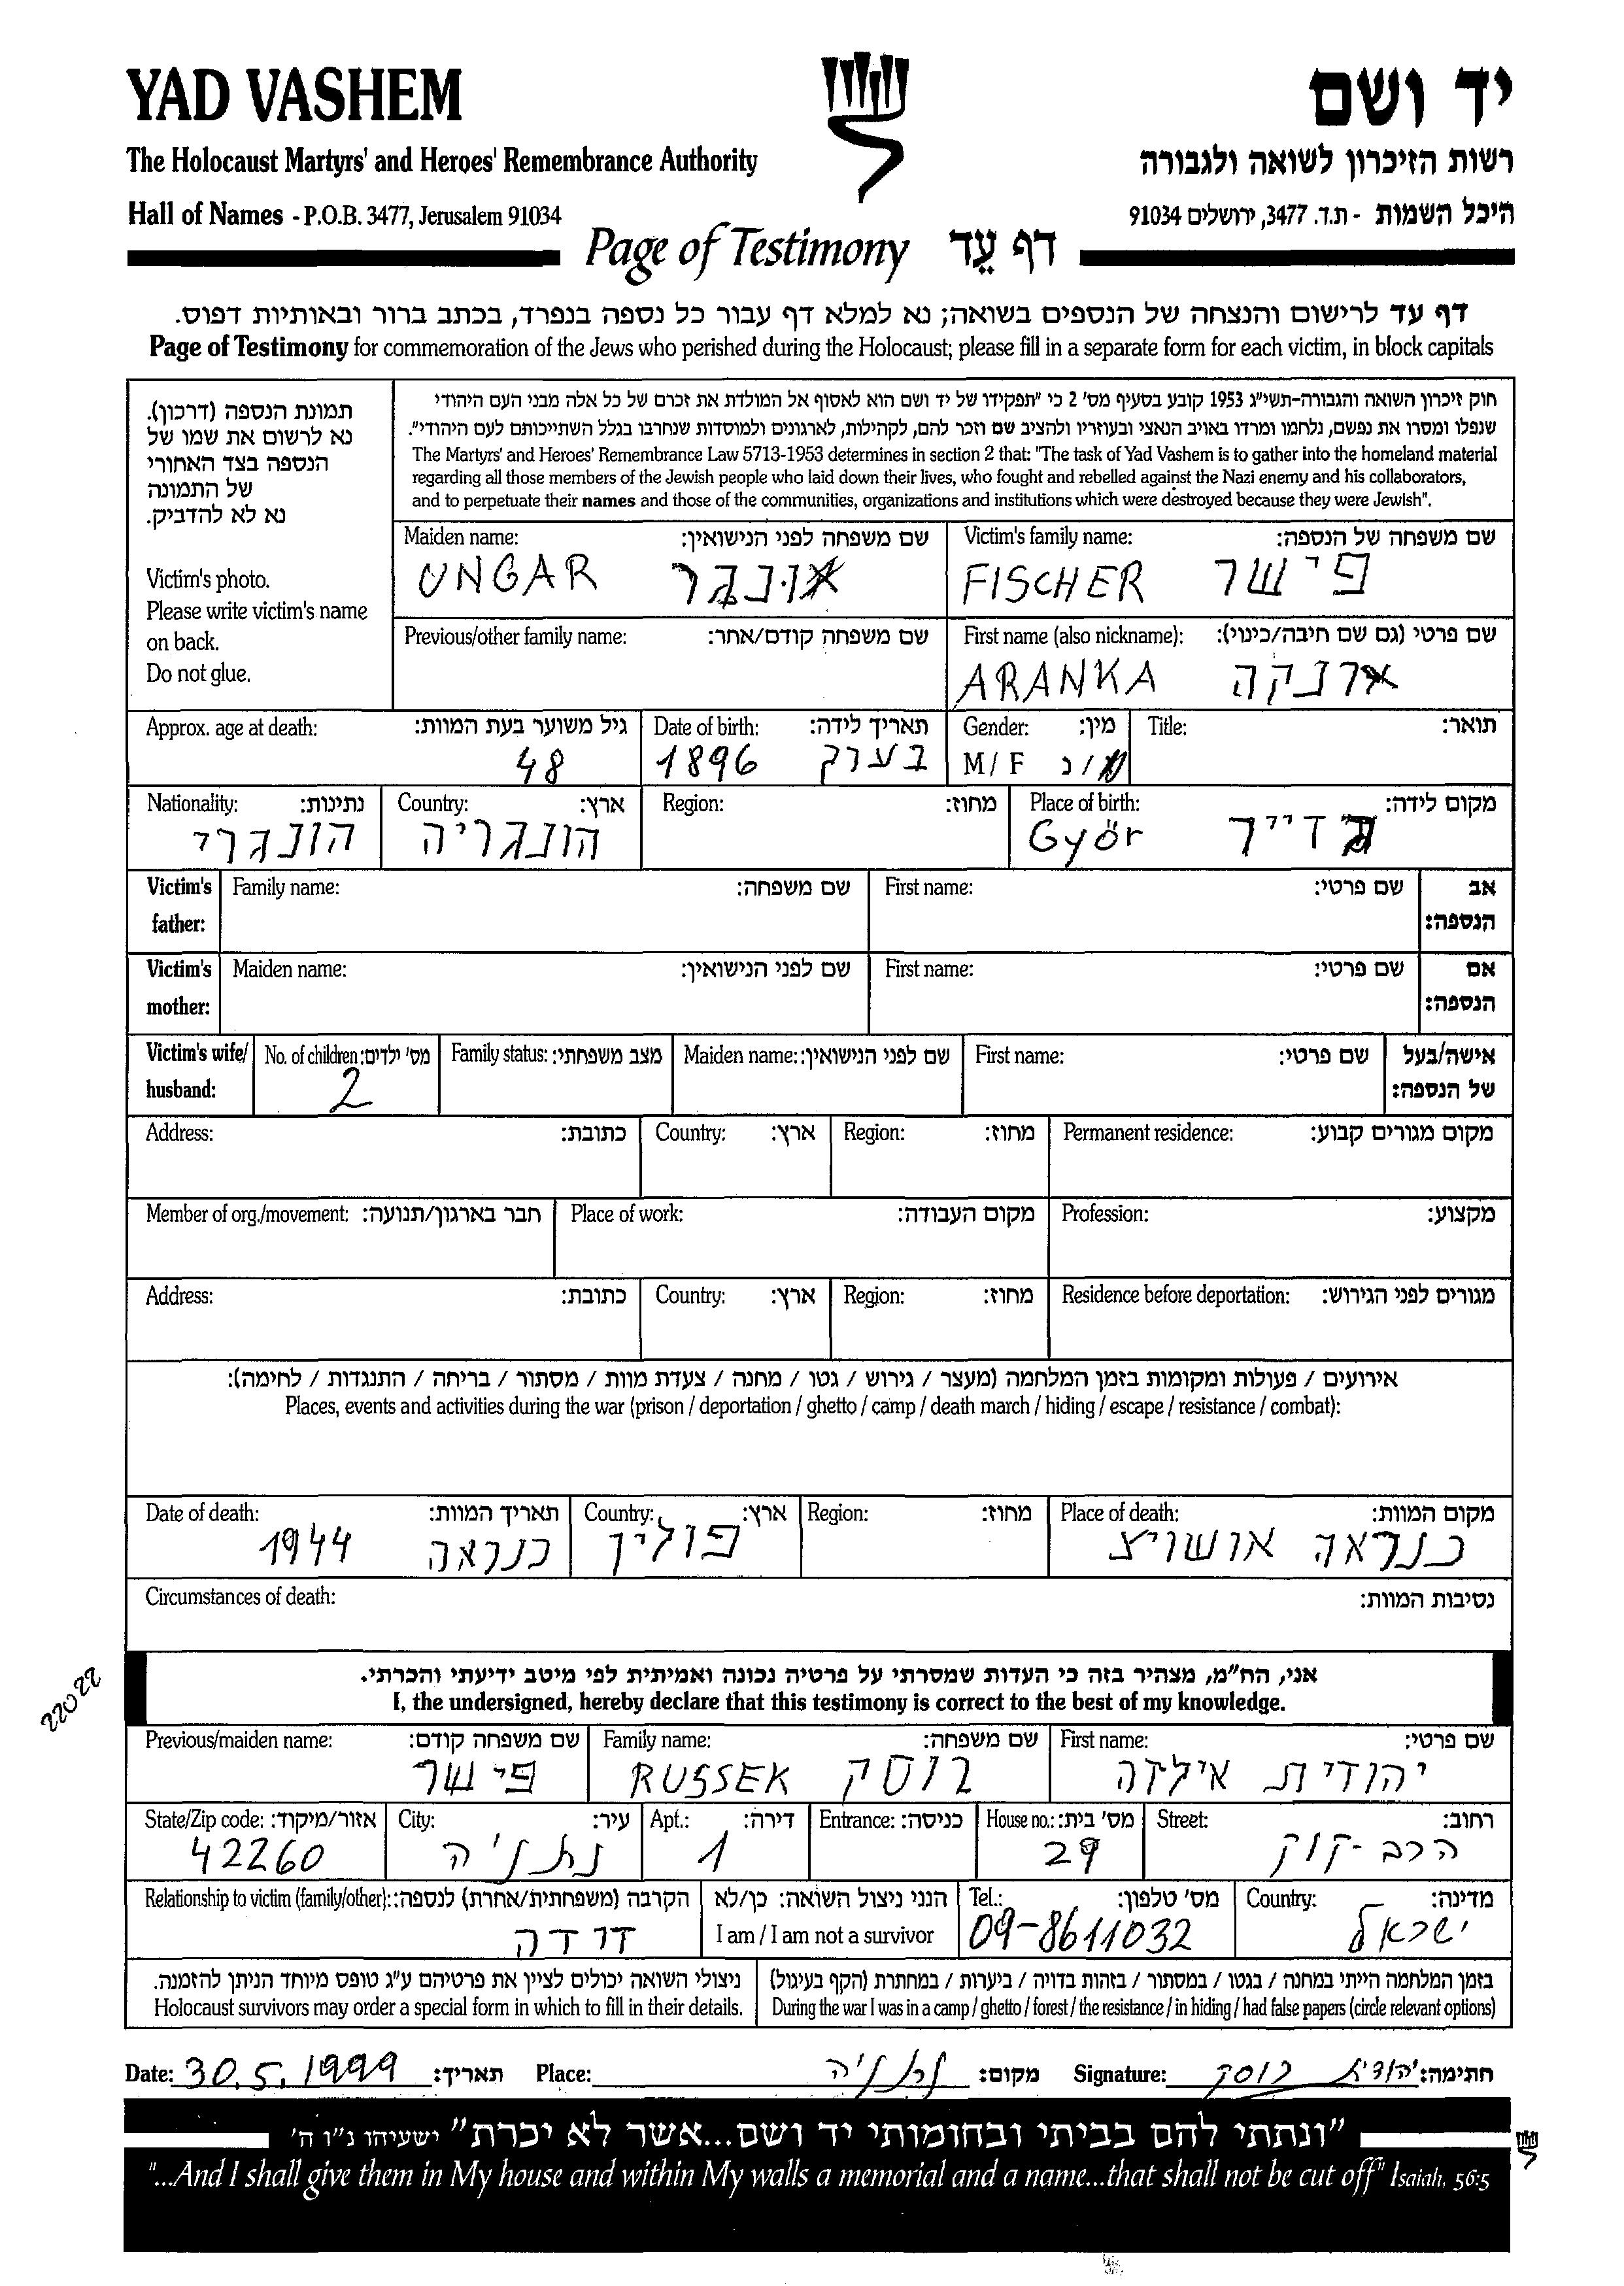 YAD VASHEM
יד ושם
The Holocaust Martyrs' and Heroes' Remembrance Authority
רשות הזיכרון לשואה ולגבורה
Hall of Names - P.O.B. 3477, Jerusalem 91034
היכל השמות - ת.ד. 3477, ירושלים 91034
Page of Testimony דף עֵד
דף עד לרישום והנצחה של הנספים בשואה; נא למלא דף עבור כל נספה בנפרד, בכתב ברור ובאותיות דפוס.
Page of Testimony for commemoration of the Jews who perished during the Holocaust; please fill in a separate form for each victim, in block capitals
תמונת הנספה (דרכון).
נא לרשום את שמו של
הנספה בצד האחורי
של התמונה
נא לא להדביק.
Victim's photo.
Please write victim's name
on back.
Do not glue.
חוק זיכרון השואה והגבורה-תשי״ג 1953 קובע בסעיף מס׳ 2 כי "תפקידו של יד ושם הוא לאסוף אל המולדת את זכרם של כל אלה מבני העם היהודי
שנפלו ומסרו את נפשם, נלחמו ומרדו באויב הנאצי ובעוזריו ולהציב שם וזכר להם, לקהילות, לארגונים ולמוסדות שנחרבו בגלל השתייכותם לעם היהודי".
The Martyrs' and Heroes' Remembrance Law 5713-1953 determines in section 2 that: "The task of Yad Vashem is to gather into the homeland material
regarding all those members of the Jewish people who laid down their lives, who fought and rebelled against the Nazi enemy and his collaborators,
and to perpetuate their names and those of the communities, organizations and institutions which were destroyed because they were Jewish".
Maiden name: שם משפחה לפני הנישואין:
UNGAR אונגר
Victim's family name: שם משפחה של הנספה:
FISCHER פישר
Previous/other family name: שם משפחה קודם/אחר:
First name (also nickname): שם פרטי (גם שם חיבה/כינוי):
ARANKA ארנקה
Approx. age at death: גיל משוער בעת המוות:
48
Date of birth: תאריך לידה:
1896 בערך
Gender: מין:
M / F ז/נ
Title: תואר:
Nationality: נתינות:
הונגרי
Country: ארץ:
הונגריה
Region: מחוז:
Place of birth: מקום לידה:
Györ
Victim's father: Family name: שם משפחה: First name: שם פרטי: אב הנספה:
Victim's mother: Maiden name: שם לפני הנישואין: First name: שם פרטי: אם הנספה:
Victim's wife/ husband: No. of children: מס׳ ילדים: Family status: מצב משפחתי: Maiden name: שם לפני הנישואין: First name: שם פרטי: אישה/בעל של הנספה:
2
Address: כתובת: Country: ארץ: Region: מחוז: Permanent residence: מקום מגורים קבוע:
Member of org./movement: חבר בארגון/תנועה: Place of work: מקום העבודה: Profession: מקצוע:
Address: כתובת: Country: ארץ: Region: מחוז: Residence before deportation: מגורים לפני הגירוש:
אירועים / פעולות ומקומות בזמן המלחמה (מעצר / גירוש / גטו / מחנה / צעדת מוות / מסתור / בריחה / התנגדות / לחימה):
Places, events and activities during the war (prison / deportation / ghetto / camp / death march / hiding / escape / resistance / combat):
Date of death: תאריך המוות:
1944 כנראה
Country: ארץ:
פולין
Region: מחוז:
Place of death: מקום המוות:
כנראה אושויצ
Circumstances of death: נסיבות המוות:
22022
אני, הח״מ, מצהיר בזה כי העדות שמסרתי על פרטיה נכונה ואמיתית לפי מיטב ידיעתי והכרתי.
I, the undersigned, hereby declare that this testimony is correct to the best of my knowledge.
Previous/maiden name: שם משפחה קודם:
פישר
Family name: שם משפחה:
RUSSEK רוסק
First name: שם פרטי:
יהודית אילזה
State/Zip code: אזור/מיקוד:
42260
City: עיר:
נתניה
Apt.: דירה:
1
Entrance: כניסה:
House no.: מס׳ בית:
29
Street: רחוב:
הרב-קוק
Relationship to victim (family/other): הקרבה (משפחתית/אחרת) לנספה:
דודה
הנני ניצול השואה: כן/לא
I am / I am not a survivor
Tel.: מס׳ טלפון:
09-8611032
Country: מדינה:
ישראל
ניצולי השואה יכולים לציין את פרטיהם ע״ג טופס מיוחד הניתן להזמנה.
Holocaust survivors may order a special form in which to fill in their details.
בזמן המלחמה הייתי במחנה / בגטו / במסתור / בזהות בדויה / ביערות / במחתרת (הקף בעיגול)
During the war I was in a camp / ghetto / forest / the resistance / in hiding / had false papers (circle relevant options)
Date: 30.5.1999 תאריך: Place: נתניה מקום: Signature: יהודית רוסק חתימה:
"ונתתי להם בביתי ובחומותי יד ושם...אשר לא יכרת" ישעיהו נ״ו ה׳
"...And I shall give them in My house and within My walls a memorial and a name...that shall not be cut off" Isaiah, 56:5